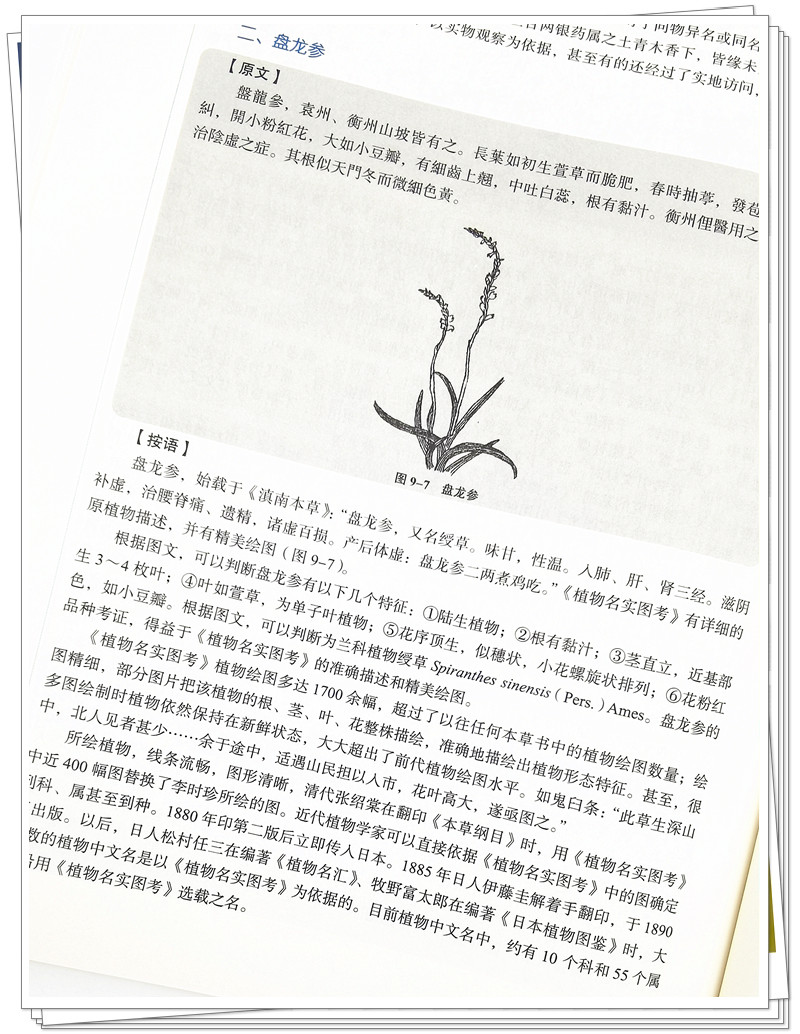 同物异名或同名
百两银药属之土青木香下，皆缘未
以实物观察为依据，甚至有的还经过了实地访问，
二、盘龙参
【原文】
盤龍參，袁州、衡州山坡皆有之。長葉如初生萱草而脆肥，春時抽葶，發苞
糾，開小粉紅花，大如小豆瓣，有細齒上翹，中吐白蕊，根有黏汁。衡州俚醫用之
治陰虛之症。其根似天門冬而微細色黄。
图 9-7 盘龙参
【按语】
盘龙参，始载于《滇南本草》：“盘龙参，又名绶草。味甘，性温。入肺、肝、肾三经。滋阴
补虚，治腰脊痛、遗精，诸虚百损。产后体虚：盘龙参二两煮鸡吃。”《植物名实图考》有详细的
原植物描述，并有精美绘图（图 9-7）。
根据图文，可以判断盘龙参有以下几个特征：①陆生植物；②根有黏汁；③茎直立，近基部
生 3～4 枚叶；④叶如萱草，为单子叶植物；⑤花序顶生，似穗状，小花螺旋状排列；⑥花粉红
色，如小豆瓣。根据图文，可以判断为兰科植物绶草 Spiranthes sinensis（Pers.）Ames。盘龙参的
品种考证，得益于《植物名实图考》的准确描述和精美绘图。
《植物名实图考》植物绘图多达 1700 余幅，超过了以往任何本草书中的植物绘图数量；绘
图精细，部分图片把该植物的根、茎、叶、花整株描绘，准确地描绘出植物形态特征。甚至，很
多图绘制时植物依然保持在新鲜状态，大大超出了前代植物绘图水平。如鬼臼条：“此草生深山
中，北人见者甚少……余于途中，适遇山民担以入市，花叶高大，遂亟图之。”
所绘植物，线条流畅，图形清晰，清代张绍棠在翻印《本草纲目》时，用《植物名实图考》
中近 400 幅图替换了李时珍所绘的图。近代植物学家可以直接依据《植物名实图考》中的图确定
到科、属甚至到种。1880 年印第二版后立即传入日本。1885 年日人伊藤圭解着手翻印，于 1890
出版。以后，日人松村任三在编著《植物名汇》、牧野富太郎在编著《日本植物图鉴》时，大
数的植物中文名是以《植物名实图考》为依据的。目前植物中文名中，约有 10 个科和 55 个属
用《植物名实图考》选载之名。